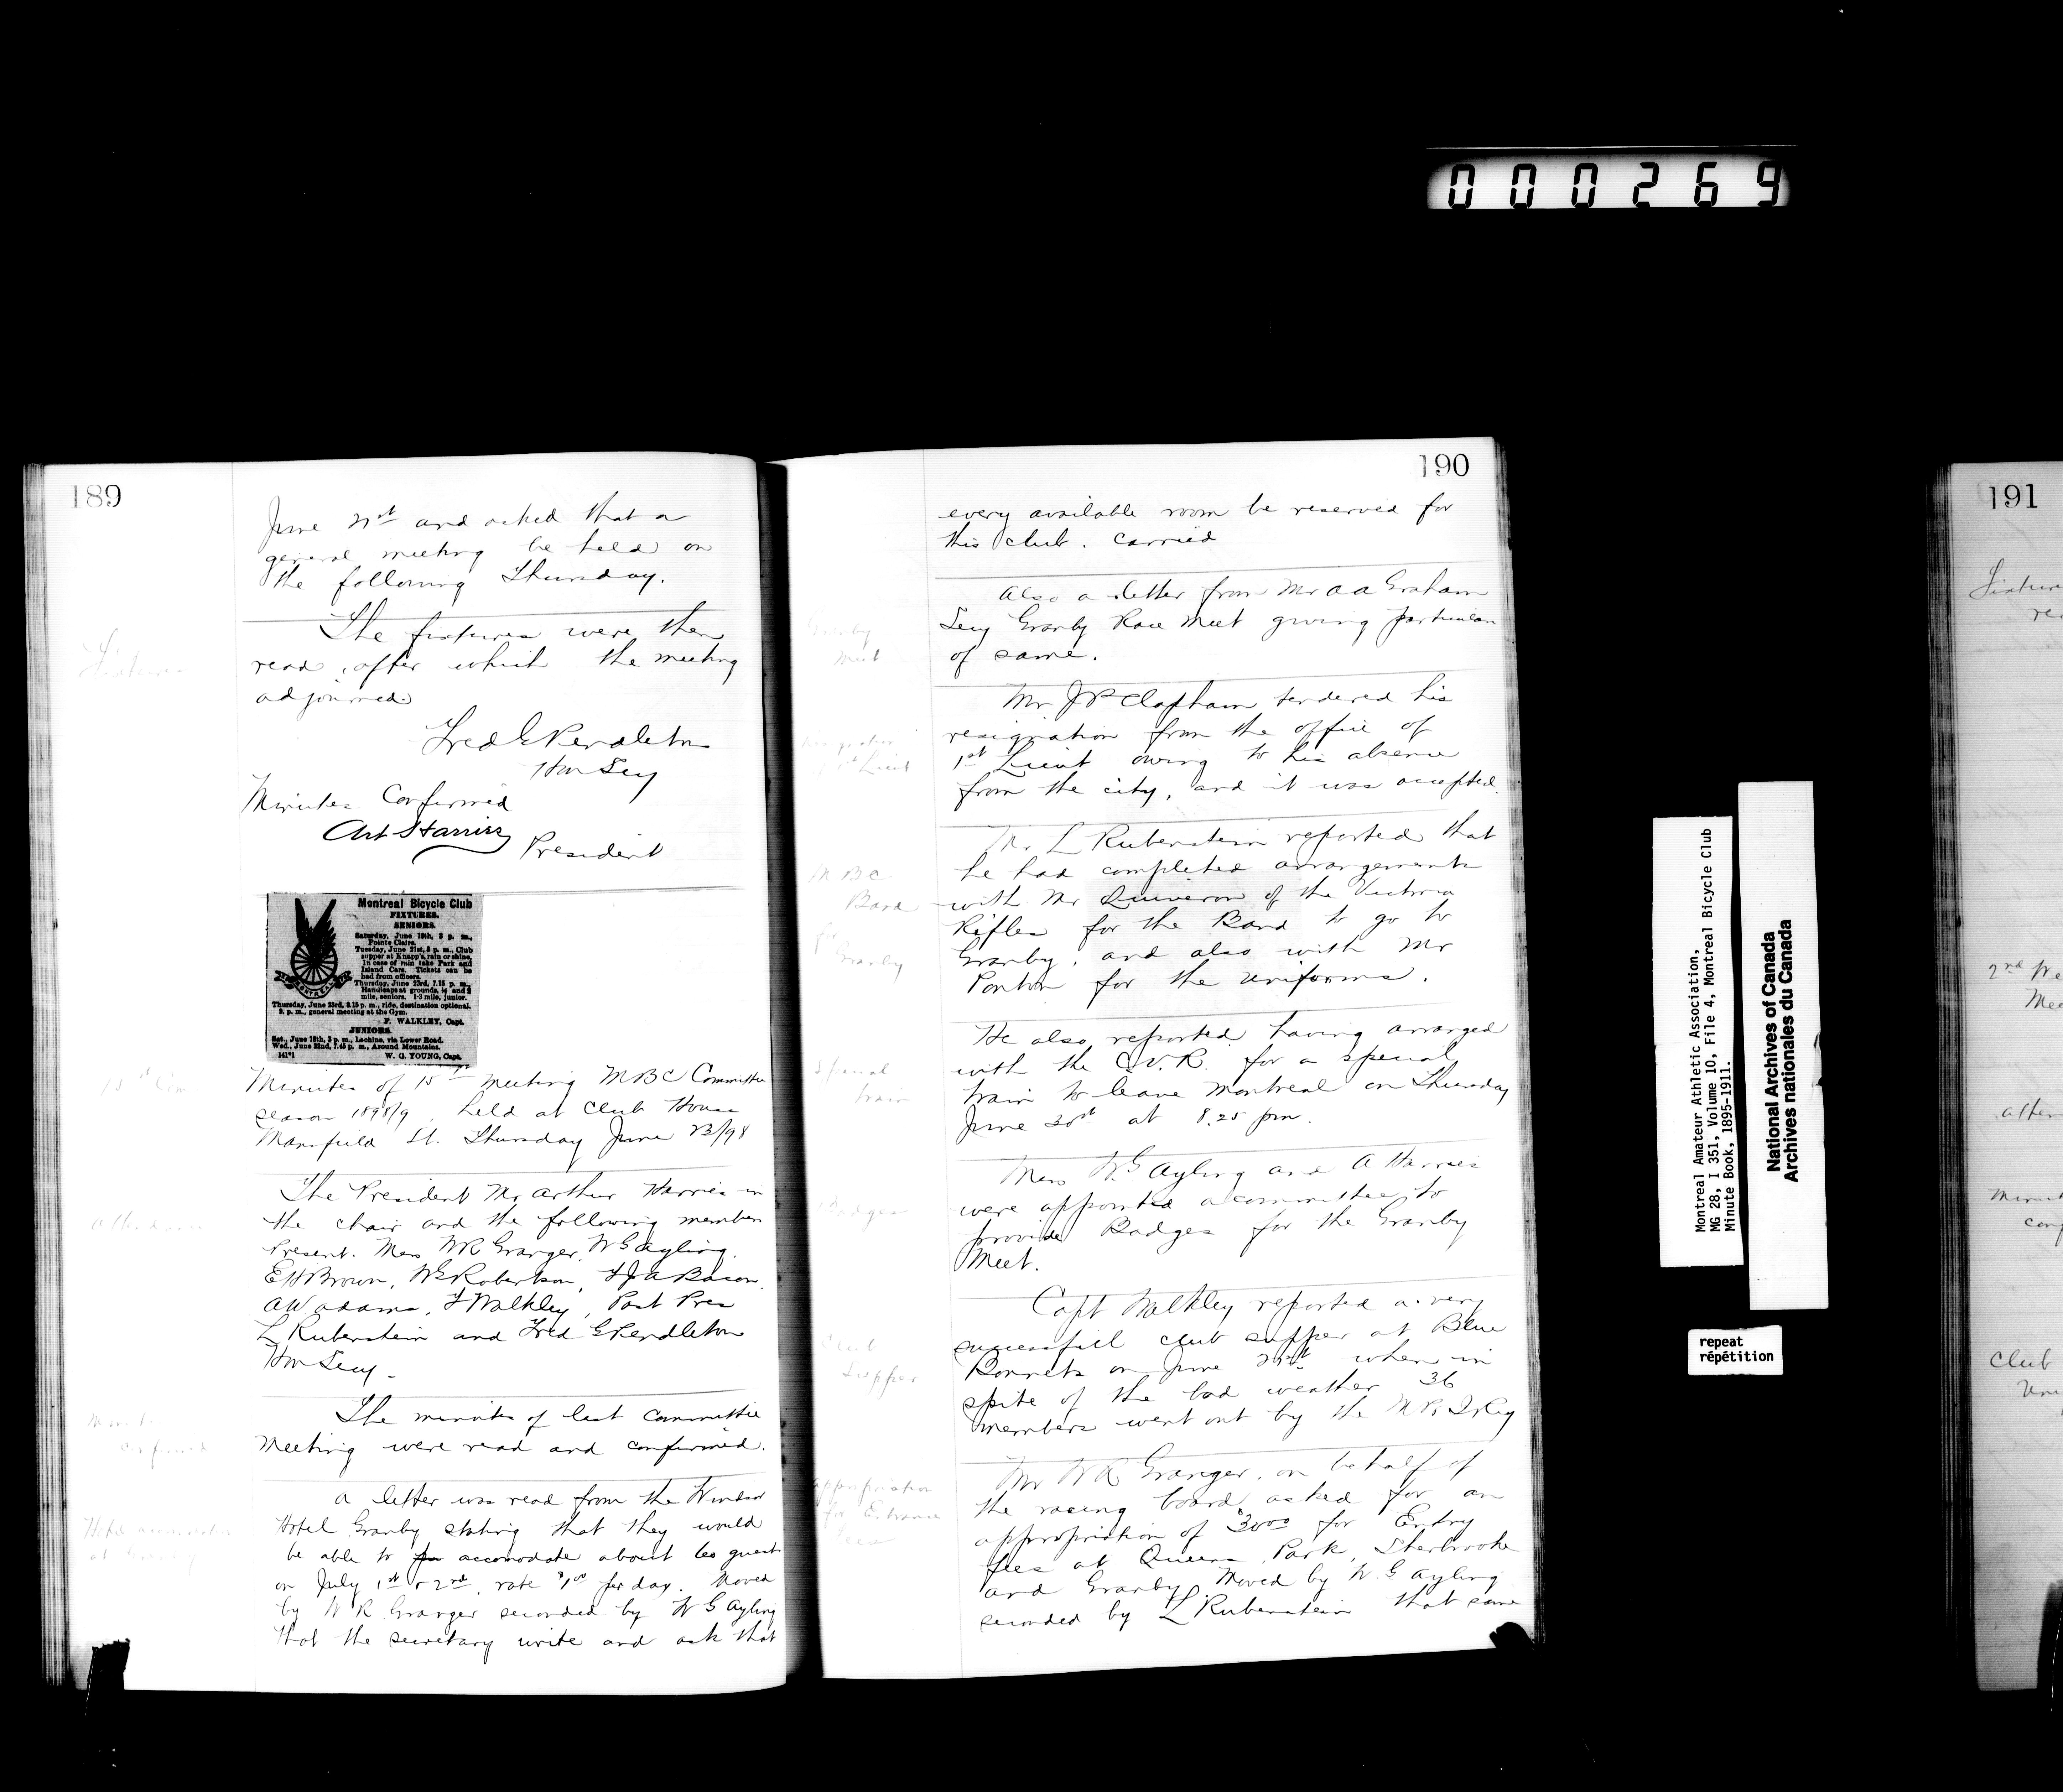 000269
189
June 21st and asked that a
general meeting be held on
the following Thursday.
Fixtures
The fixtures were then
read, after which the meeting
adjourned
Fred G Pendleton
Hon Secy
Minutes Confirmed
Art Harries
President
Montreal Bicycle Club
FIXTURES.
SENIORS.
Saturday, June 18th, 3 p. m.,
Pointe Claire.
Tuesday, June 21st, 8 p. m., Club
supper at Knapp's, rain or shine.
In case of rain take Park and
Island Cars. Tickets can be
had from officers.
Thursday, June 23rd, 7.15 p. m.,
Handicaps at grounds, ½ and 2
mile, seniors. 1-3 mile, junior.
Thursday, June 23rd, 8.15 p. m., ride, destination optional.
9. p. m., general meeting at the Gym.
F. WALKLEY, Capt.
JUNIORS.
Sat., June 18th, 3 p. m., Lachine, via Lower Road.
Wed., June 22nd, 7.45 p. m., Around Mountains.
141*1 W. G. YOUNG, Capt.
MONTREAL
15th Com
Minutes of 15th meeting MBC Committee
season 1898/9. held at Club House
Mansfield St. Thursday June 23/98
The President Mr Arthur Harries in
the chair and the following members
Present. Mess WR Granger, WG Ayling.
EH Brown, WG Robertson, FJA Bacon.
AW Adams, F Walkley, Past Pres
L Rubenstein and Fred G Pendleton
Hon Secy -
The minutes of last committee
Meeting were read and confirmed.
A letter was read from the Windsor
Hotel Granby stating that they would
be able to accomodate about 60 guests
on July 1st & 2nd, rate $1.00 per day. Moved
by W R Granger seconded by W G Ayling
that the secretary write and ask that
190
every available room be reserved for
this club. Carried
Granby
Meet
Also a letter from Mr A A Graham
Secy Granby Race Meet giving particulars
of same.
Resignation
1st Lieut
Mr J P Clapham tendered his
resignation from the office of
1st Lieut owing to his absence
from the city, and it was accepted.
M B C
Band
for
Granby
Mr L Rubenstein reported that
he had completed arrangements
with Mr of the Victoria
Rifles for the Band to go to
Granby, and also with Mr
Porteon for the uniforms.
Special
train
He also reported having arranged
with the C.V.R. for a special
train to leave Montreal on Thursday
June 30th at 8.25 pm.
Badges
Mess W G Ayling and A Harries
were appointed a committee to
provide Badges for the Granby
Meet.
Club
Supper
Capt Walkley reported a very
successful club supper at Blue
Bonnets on June 21st when in
spite of the bad weather 36
members went out by the M P & I Ry
Appropriation
for Entrance
Fees
Mr W R Granger, on behalf of
the racing board, asked for an
appropriation of $30.00 for Entry
fees at Queens Park, Sherbrooke
and Granby. Moved by W. G Ayling
seconded by L Rubenstein that same
Montreal Amateur Athletic Association,
MG 28, I 351, Volume 10, File 4, Montreal Bicycle Club
Minute Book, 1895-1911.
National Archives of Canada
Archives nationales du Canada
repeat
répétition
191
2nd
Club